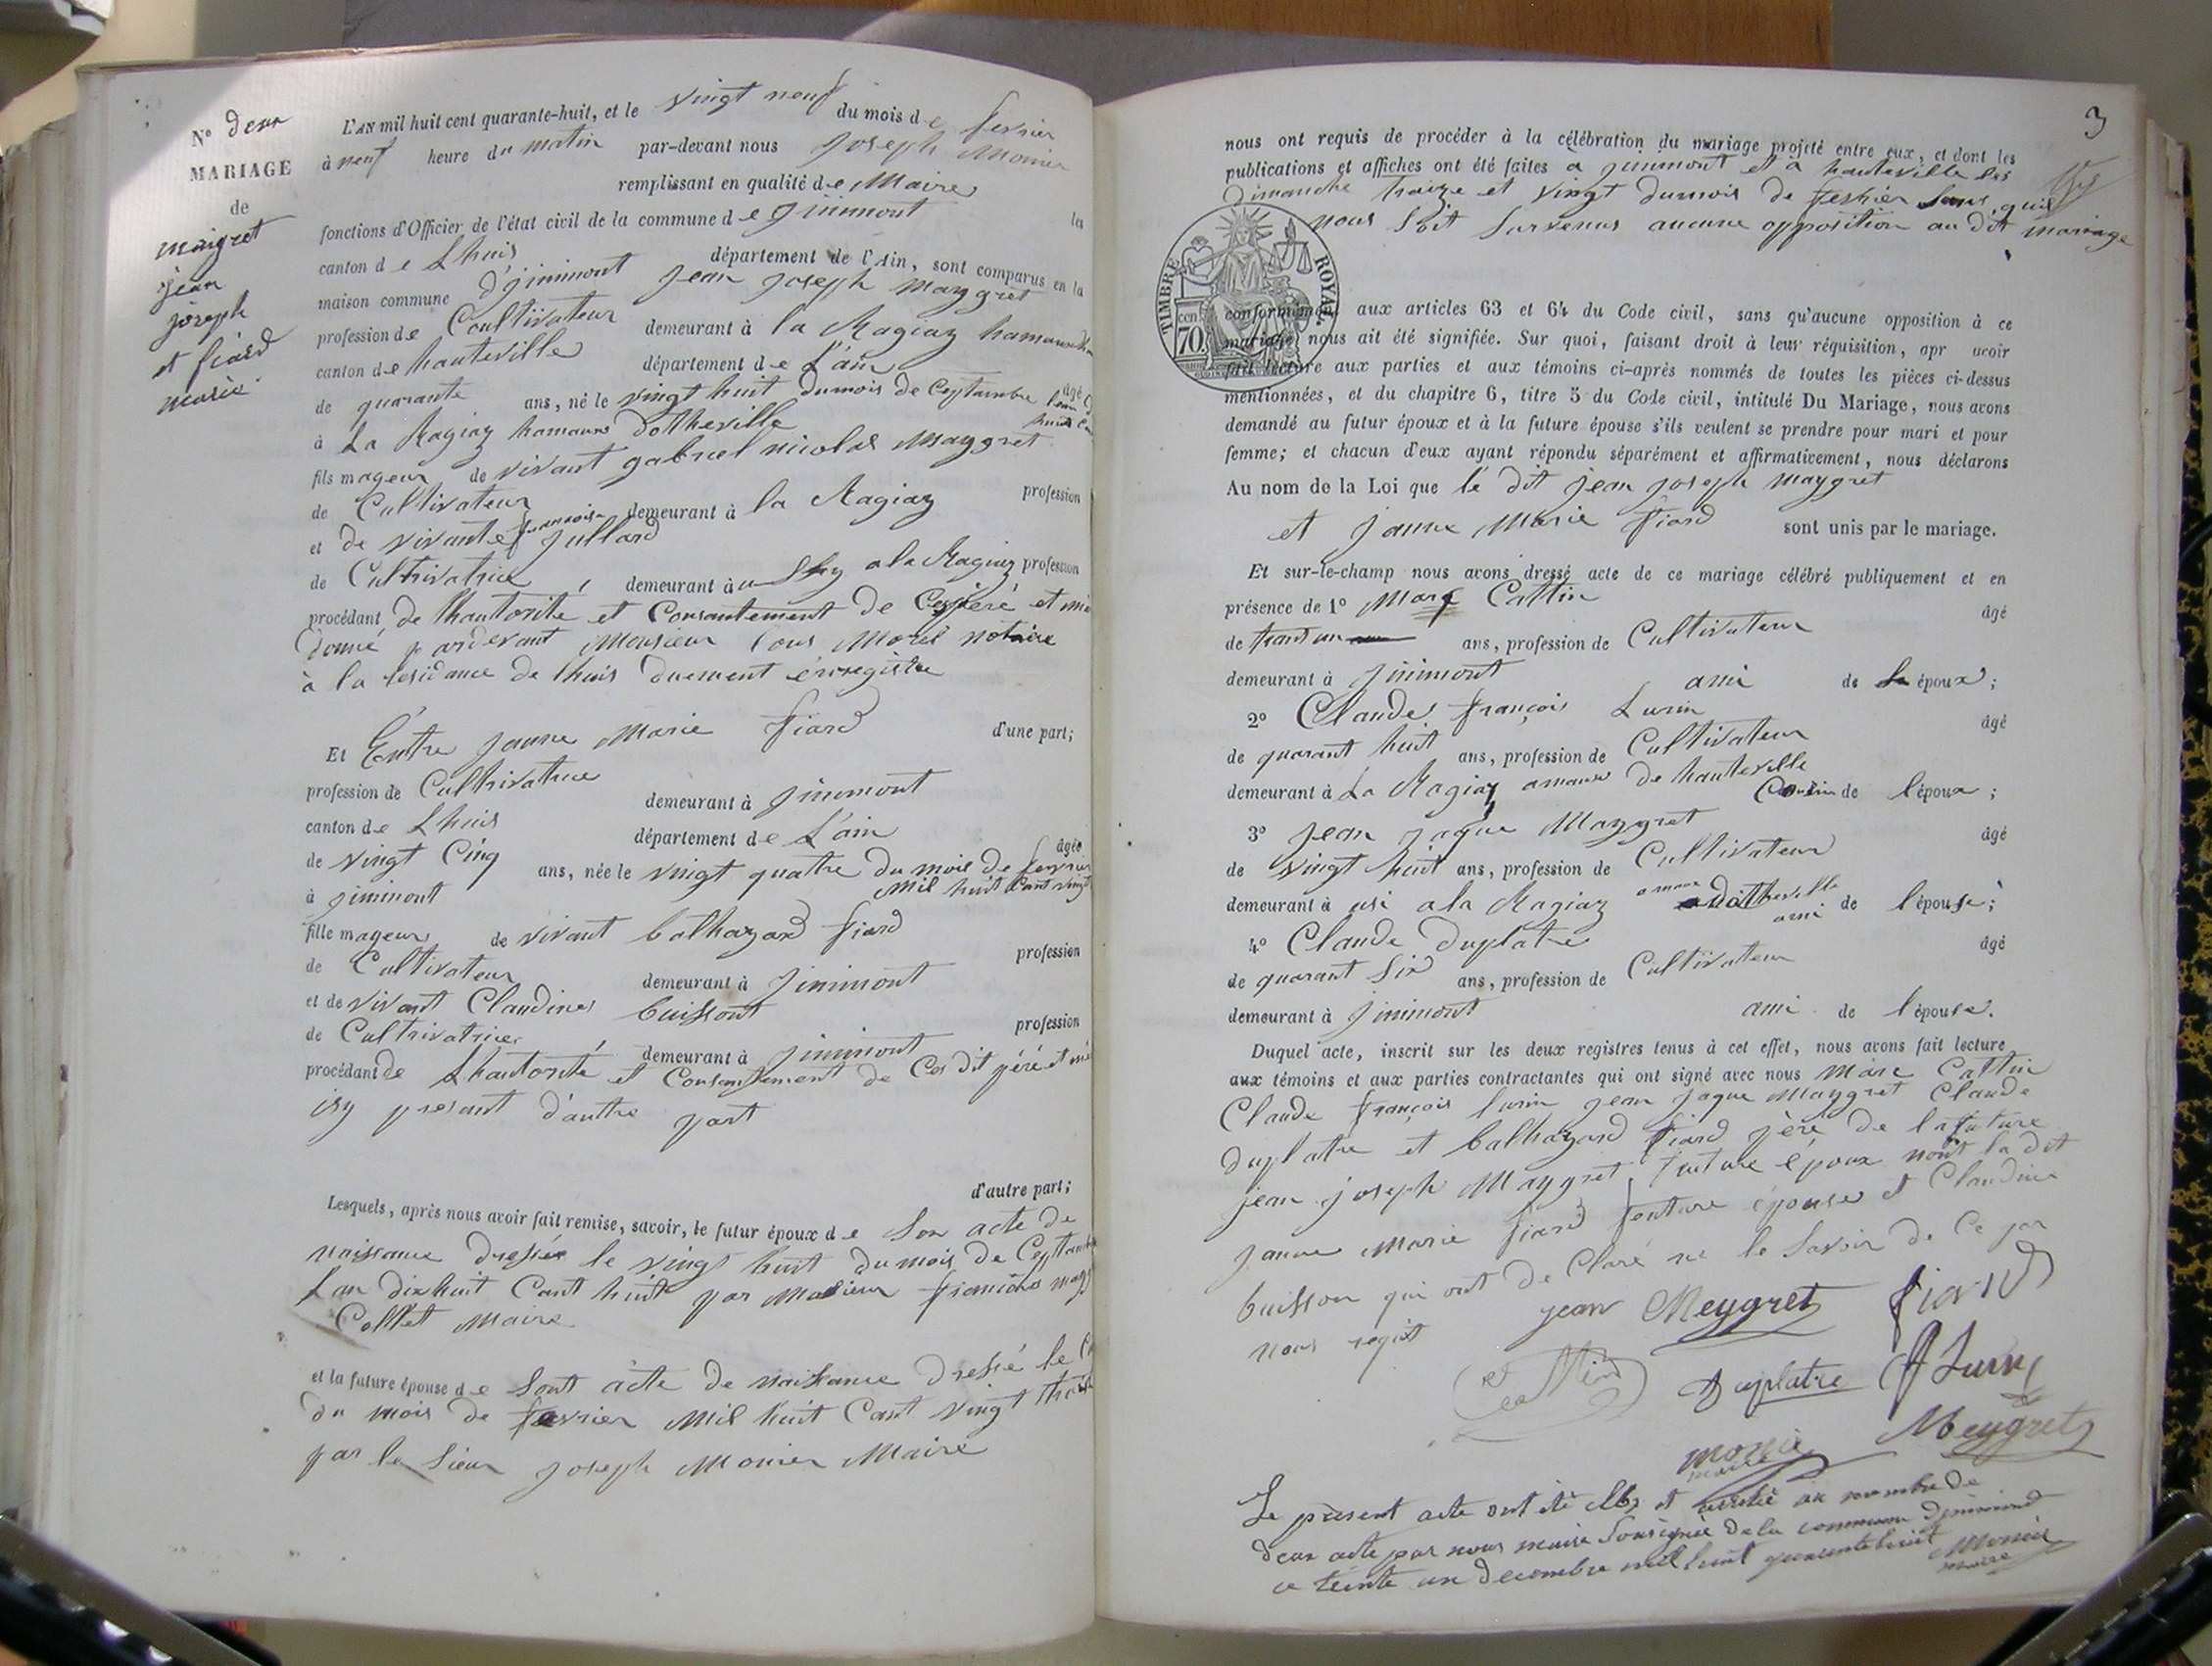 N° deux
MARIAGE
de
maigret
jean
joseph
et fiard
marie
L'AN mil huit cent quarante-huit, et le vingt neuf du mois de fevrier
à neuf heure du matin par-devant nous joseph Monier
remplissant en qualité de Maire les
fonctions d'Officier de l'état civil de la commune de jnimont
canton de Lhuis département de l'Ain, sont comparus en la
maison commune d'jnimont jean joseph Maygret
profession de Coultivateur demeurant à la Ragiaz hamaux
canton de hauteville département de L'ain âgé
de quarante ans, né le vingt huit dumois de Ceptambre
à La Ragiaz hamaux Dotheville
fils mageur de vivant gabriel nicolas Maygret profession
de Cultivateur demeurant à la Ragiaz
et de vivante françoise jullard profession
de Cultivatrice, demeurant à a la Ragiaz
procédant de Lhautorité et Consantement de Cespère et
Donné pardevant Monsieur Morel notaire
à la residance de lhuis duement énregistre
d'une part;
Et Entre janne Marie fiard
profession de Cultivatrice demeurant à jnimont
canton de Lhuis département de L'ain âgée
de vingt Cinq ans, née le vingt quattre du mois de fevrier
à jnimont Mil huit Cant vingt
fille mageur de vivant balthazard fiard profession
de Cultivateur demeurant à jnimont
et de vivant Claudine buissont profession
de Cultivatrice, demeurant à jnimont
procédant de Lhautorité et Consantement de Ces dit père et
isy presant d'autre part
d'autre part;
Lesquels, après nous avoir fait remise, savoir, le futur époux de Son acte de
naissance dressée le vingt huit du mois de Ceptambre
Lan dixhuit Cant huit par Mosieur
Collet Maire
et la future épouse de Sont acte de naissance dressé le
du mois de fevrier Mil huit Cant vingt
par le Sieur joseph Monier Maire
3
nous ont requis de procéder à la célébration du mariage projeté entre eux, et dont les
publications et affiches ont été faites a jnimont et à hauteville les
Dimanche traize et vingt dumois de fevrier Sans quil
nous Soit Survenus aucune opposition au dit mariage
TIMBRE ROYAL
70 cen
conformément aux articles 63 et 64 du Code civil, sans qu'aucune opposition à ce
mariage nous ait été signifiée. Sur quoi, faisant droit à leur réquisition, apr avoir
fait lecture aux parties et aux témoins ci-après nommés de toutes les pièces ci-dessus
mentionnées, et du chapitre 6, titre 5 du Code civil, intitulé Du Mariage, nous avons
demandé au futur époux et à la future épouse s'ils veulent se prendre pour mari et pour
femme; et chacun d'eux ayant répondu séparément et affirmativement, nous déclarons
Au nom de la Loi que le dit jean joseph Maygret
et janne Marie fiard sont unis par le mariage.
Et sur-le-champ nous avons dressé acte de ce mariage célébré publiquement et en
présence de 1° Marc Cattin âgé
de trant un ans, profession de Cultivateur
demeurant à jnimont ami de époux;
2° Claude françois Lurin âgé
de quarant huit ans, profession de Cultivateur
demeurant à La Ragiaz amaux de hauteville Cousin de l'époux;
3° jean jaque Maygret âgé
de vingt huit ans, profession de Cultivateur
demeurant à a la Ragiaz amaux dotheville ami de l'épouse;
4° Claude Duplatre âgé
de quarant Six ans, profession de Cultivateur
demeurant à jnimont ami de l'épouse.
Duquel acte, inscrit sur les deux registres tenus à cet effet, nous avons fait lecture
aux témoins et aux parties contractantes qui ont signé avec nous Marc Cattin
Claude françois lurin jean jaque Maygret Claude
duplatre et balthazard fiard père de la future
jean joseph Maygret future époux nont la dit
janne Marie fiard fouture épouse et Claudine
buisson qui ont de Claré ne le Savoir de Ce par
nous requit
jean Meygret fiard
Cattin Duplatre Lurin
monier maire Meygret
Le présent acte ont été Clos et arrêté au nombre de
deux acte par nous maire Sousignée dela commune d
ce trente un decembre mil huit quarantehuit Monier
maire